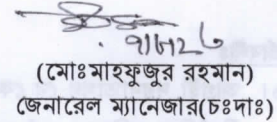 (মোঃ মাহফুজুর রহমান)
জেনারেল ম্যানেজার(চঃদাঃ)